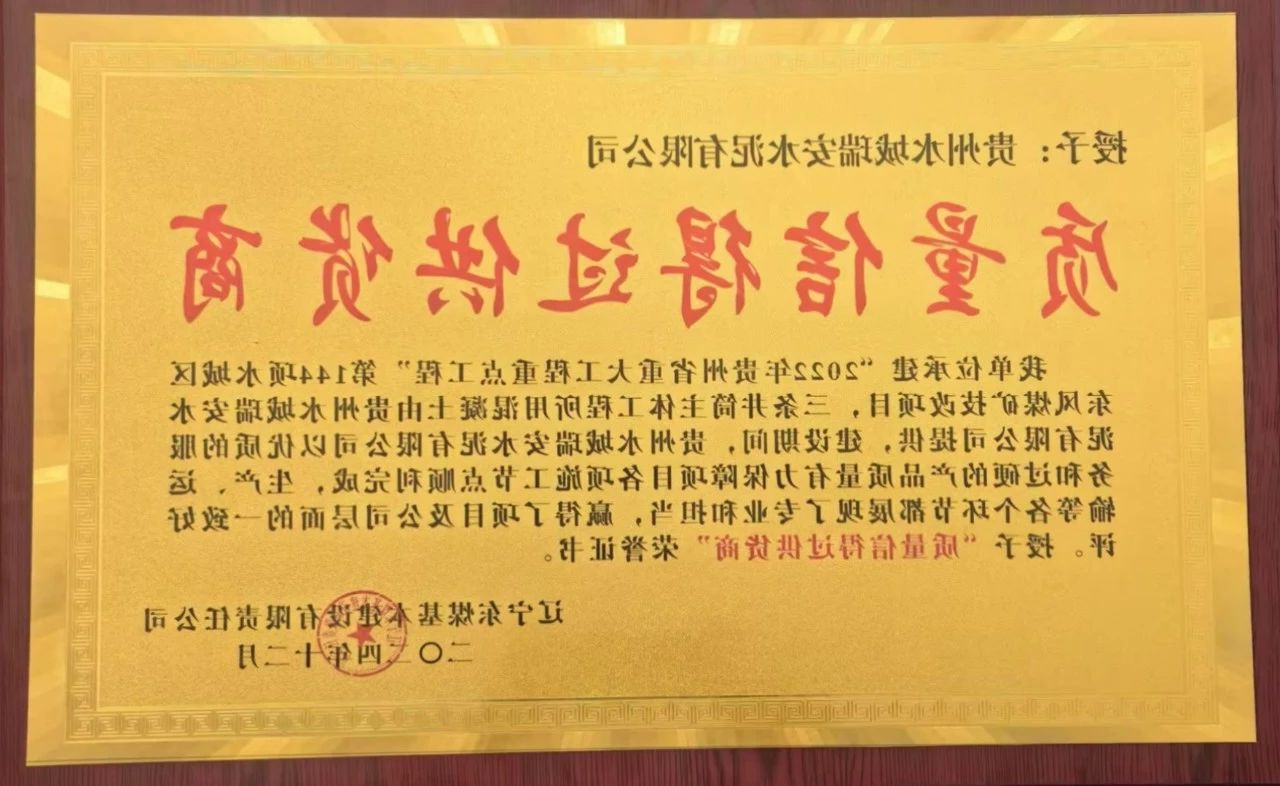 授予：贵州水城瑞安水泥有限公司
质量信得过供货商
我单位承建“2022年贵州省重大工程重点工程”第144项水城区
东风煤矿技改项目，三条井筒主体工程所用混凝土由贵州水城瑞安水
泥有限公司提供，建设期间，贵州水城瑞安水泥有限公司以优质的服
务和过硬的产品质量有力保障项目各项施工节点顺利完成，生产、运
输等各个环节都展现了专业和担当，赢得了项目及公司层面的一致好
评。授予“质量信得过供货商”荣誉证书。
辽宁东煤基本建设有限责任公司
二〇二四年十二月